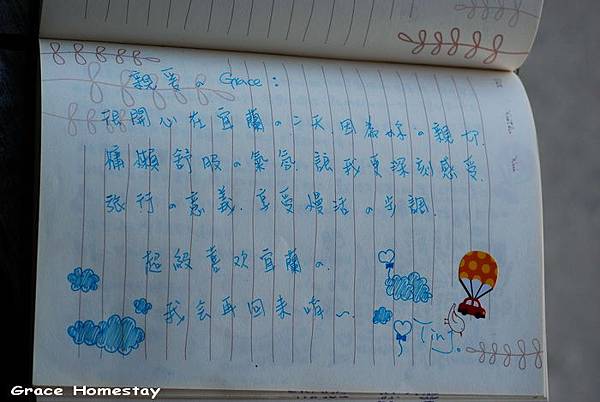 親愛の Grace：
很開心在宜蘭の二天.因為妳の親切.
慵懶舒服の氣氛.讓我更深刻感受.
旅行の意義.享受慢活の步調.
超級喜欢宜蘭の.
我会再回來唷~.
Ting.
Grace Homestay